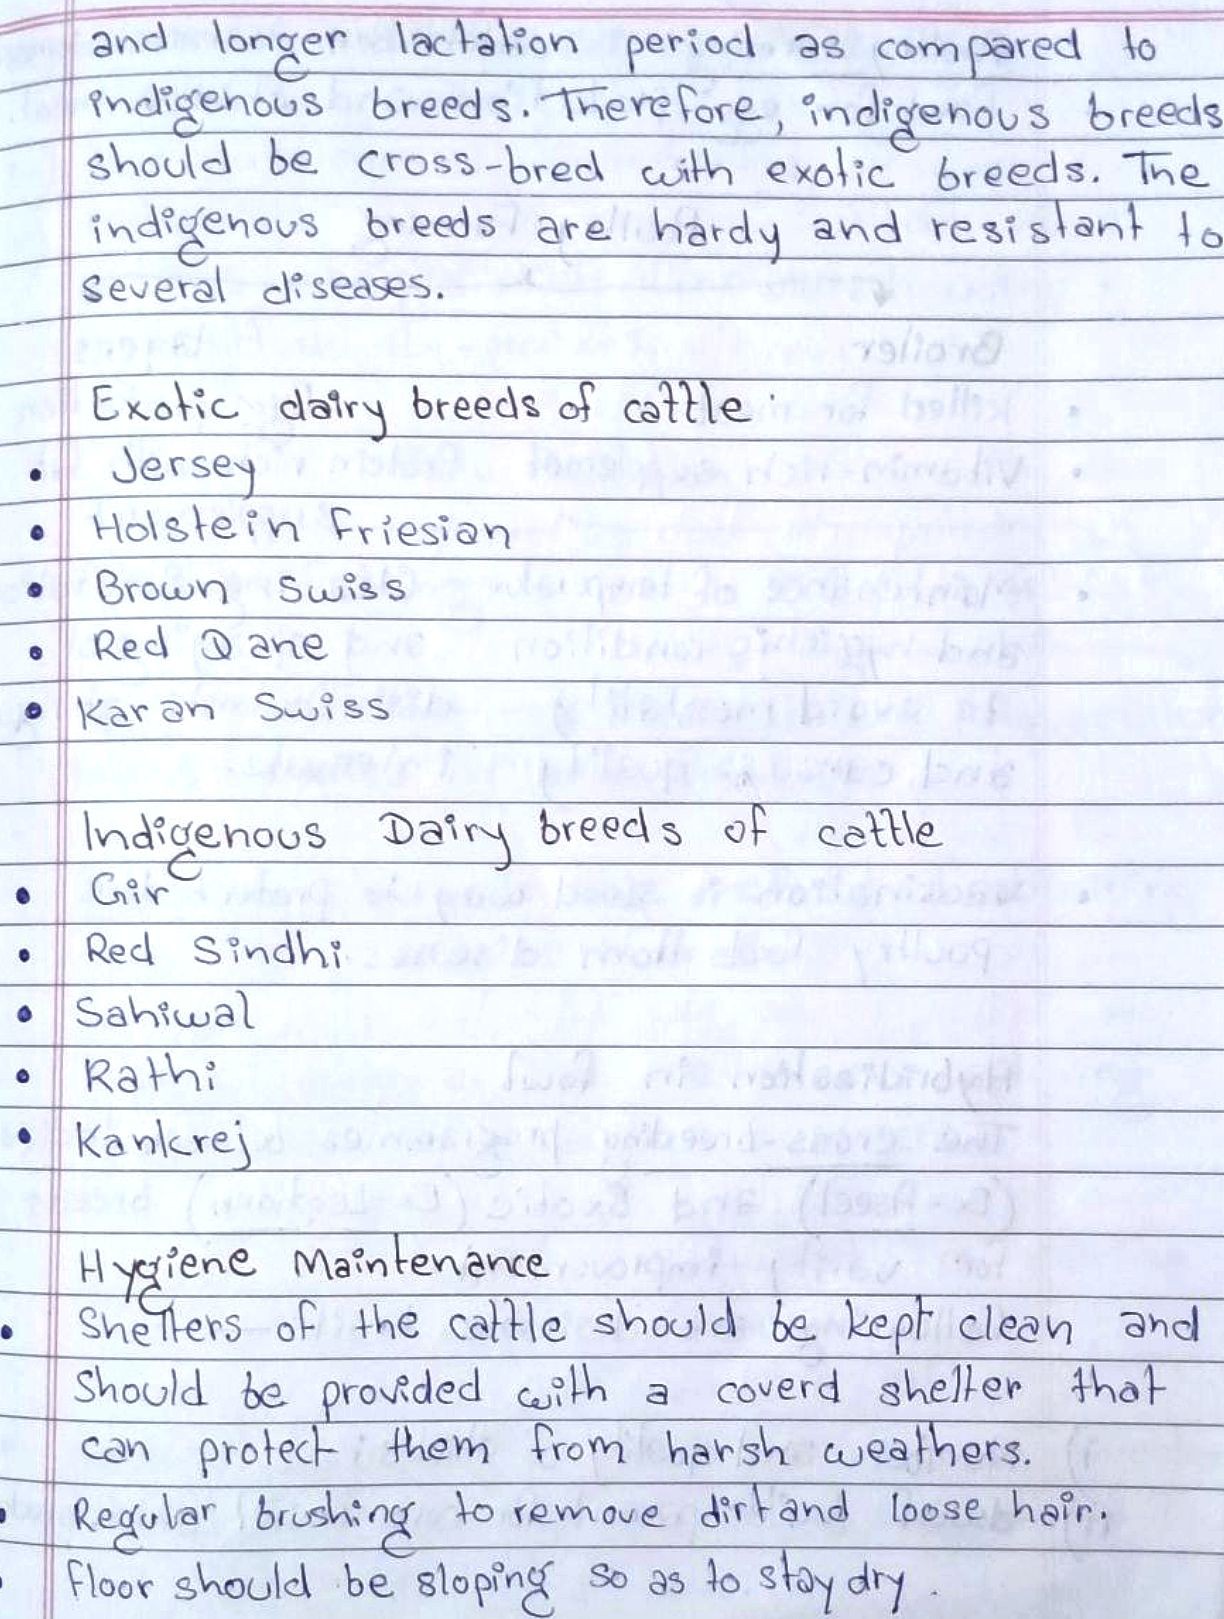 and longer lactation period as compared to
indigenous breeds. Therefore, indigenous breeds
should be cross-bred with exotic breeds. The
indigenous breeds are hardy and resistant to
several diseases.
Exotic dairy breeds of cattle:
• Jersey
• Holstein Friesian
• Brown Swiss
• Red Dane
• Karan Swiss
Indigenous Dairy breeds of cattle
• Gir
• Red Sindhi
• Sahiwal
• Rathi
• Kankrej
Hygiene Maintenance
• Shelters of the cattle should be kept clean and
should be provided with a coverd shelter that
can protect them from harsh weathers.
• Regular brushing to remove dirt and loose hair.
• Floor should be sloping so as to stay dry.